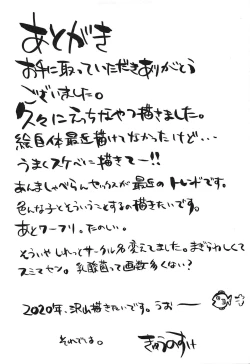 あとがき
お手に取っていただきありがとう
ございました。
久々にえっちなやつ描きました。
絵自体最近描けてなかったけど…
うまくスケベに描きてー!!
あんましゃべらんセックスが最近のトレンドです。
色んな子とそういうことするの描きたいです。
あとワーフリ。たのしい。
そういやしれっとサークル名変えてました。まぎらわしくて
スミマセン。乳酸菌って画数多くない?
2020年、沢山描きたいです。うおー
それでは。